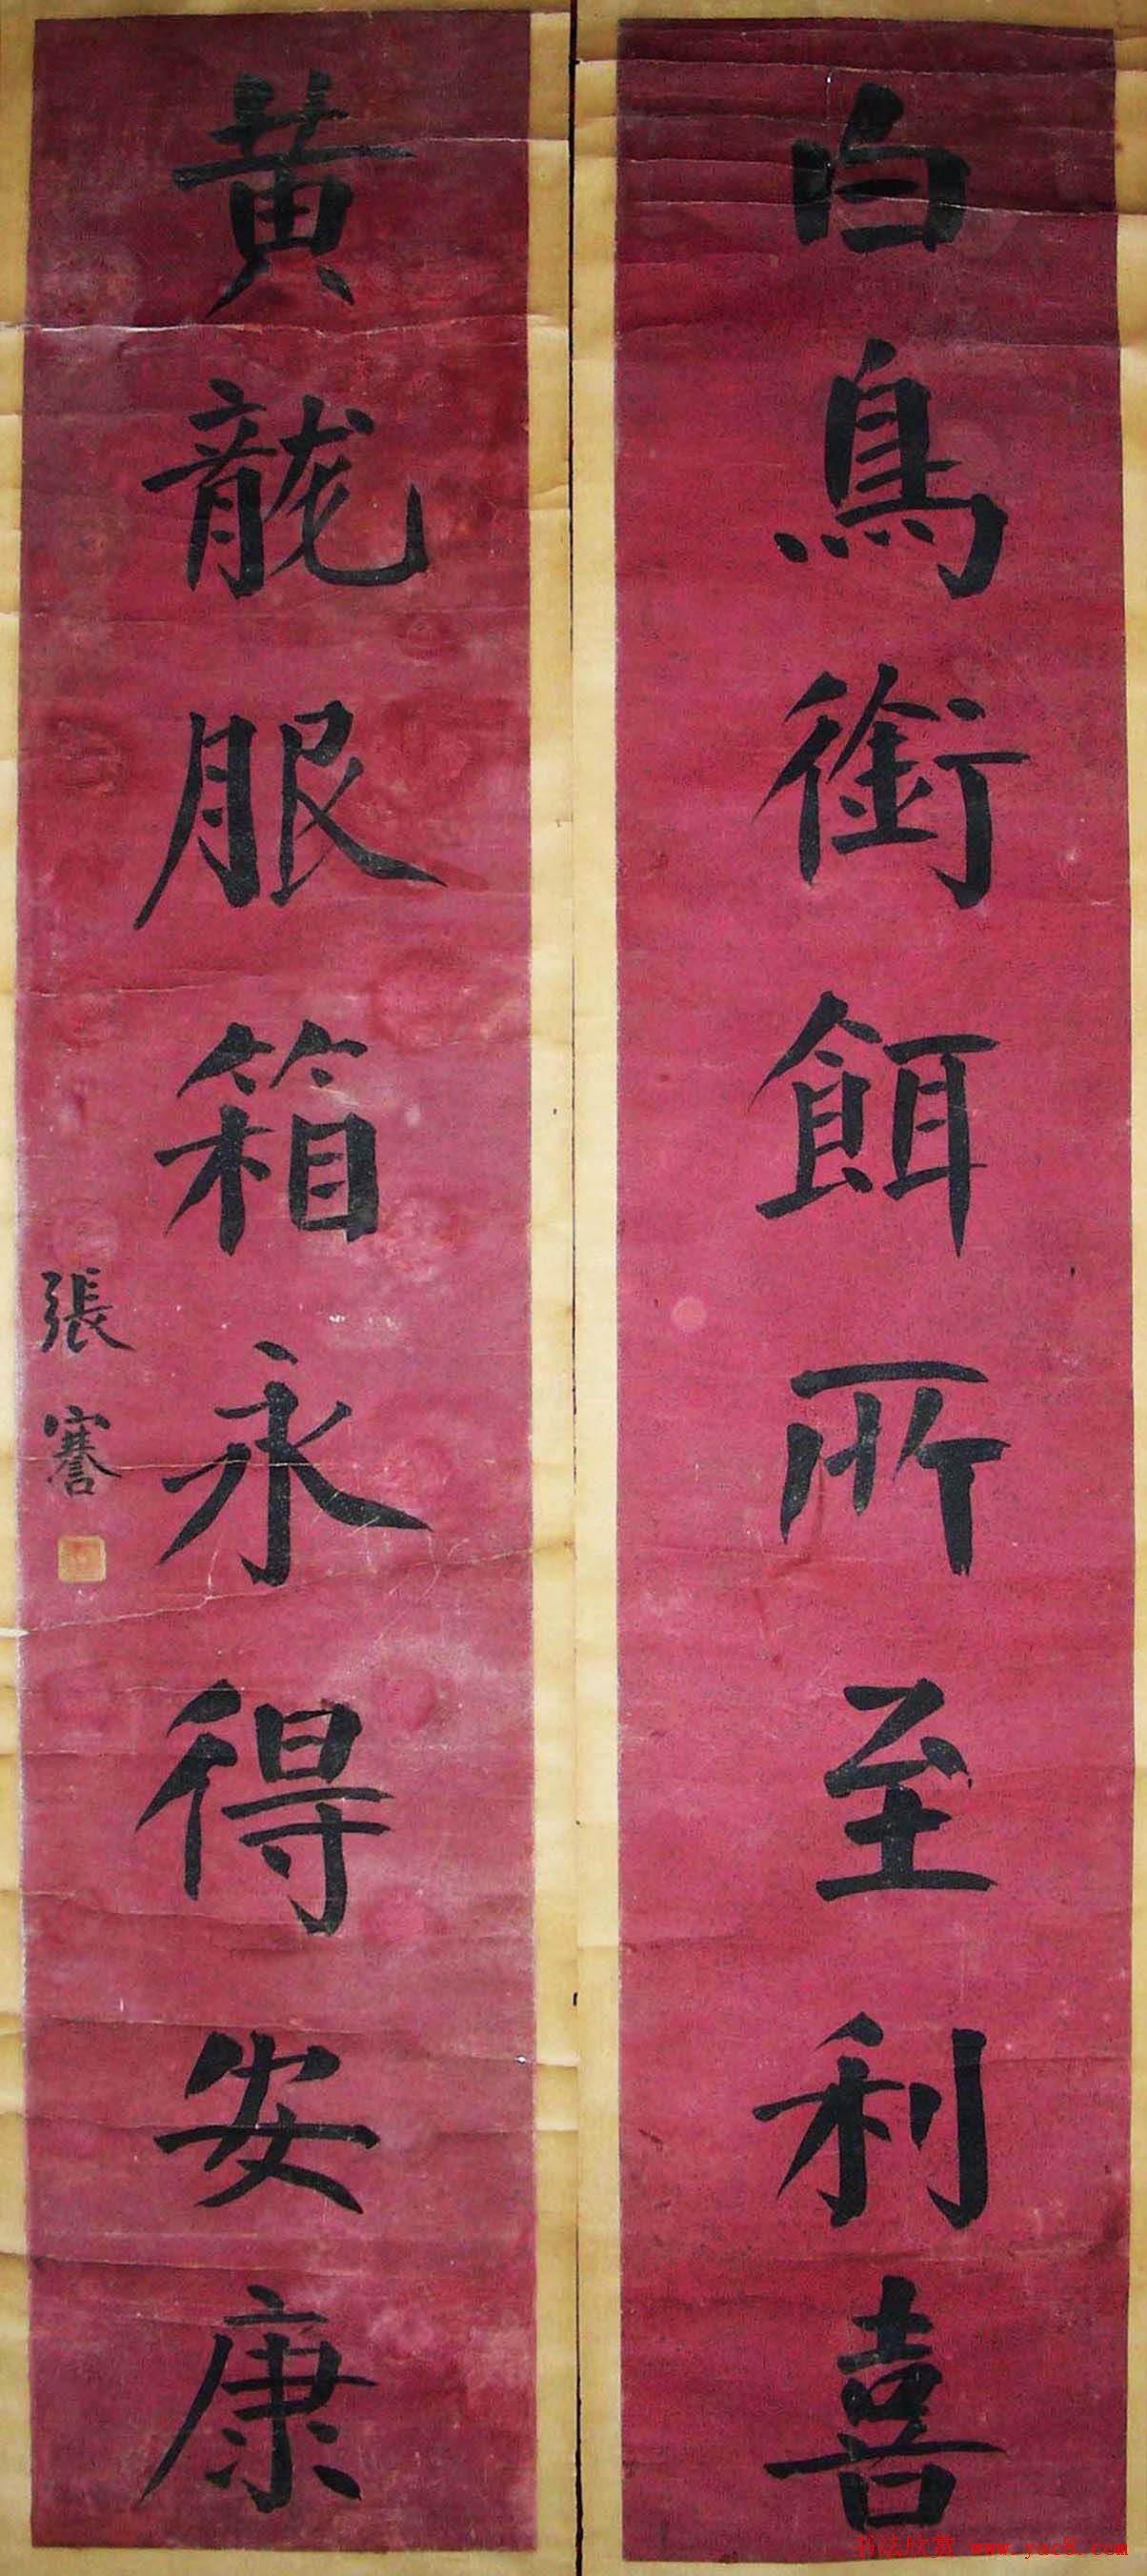 白鳥銜餌所至利喜
黃龍服箱永得安康
張謇
书法欣赏 www.yac8.com